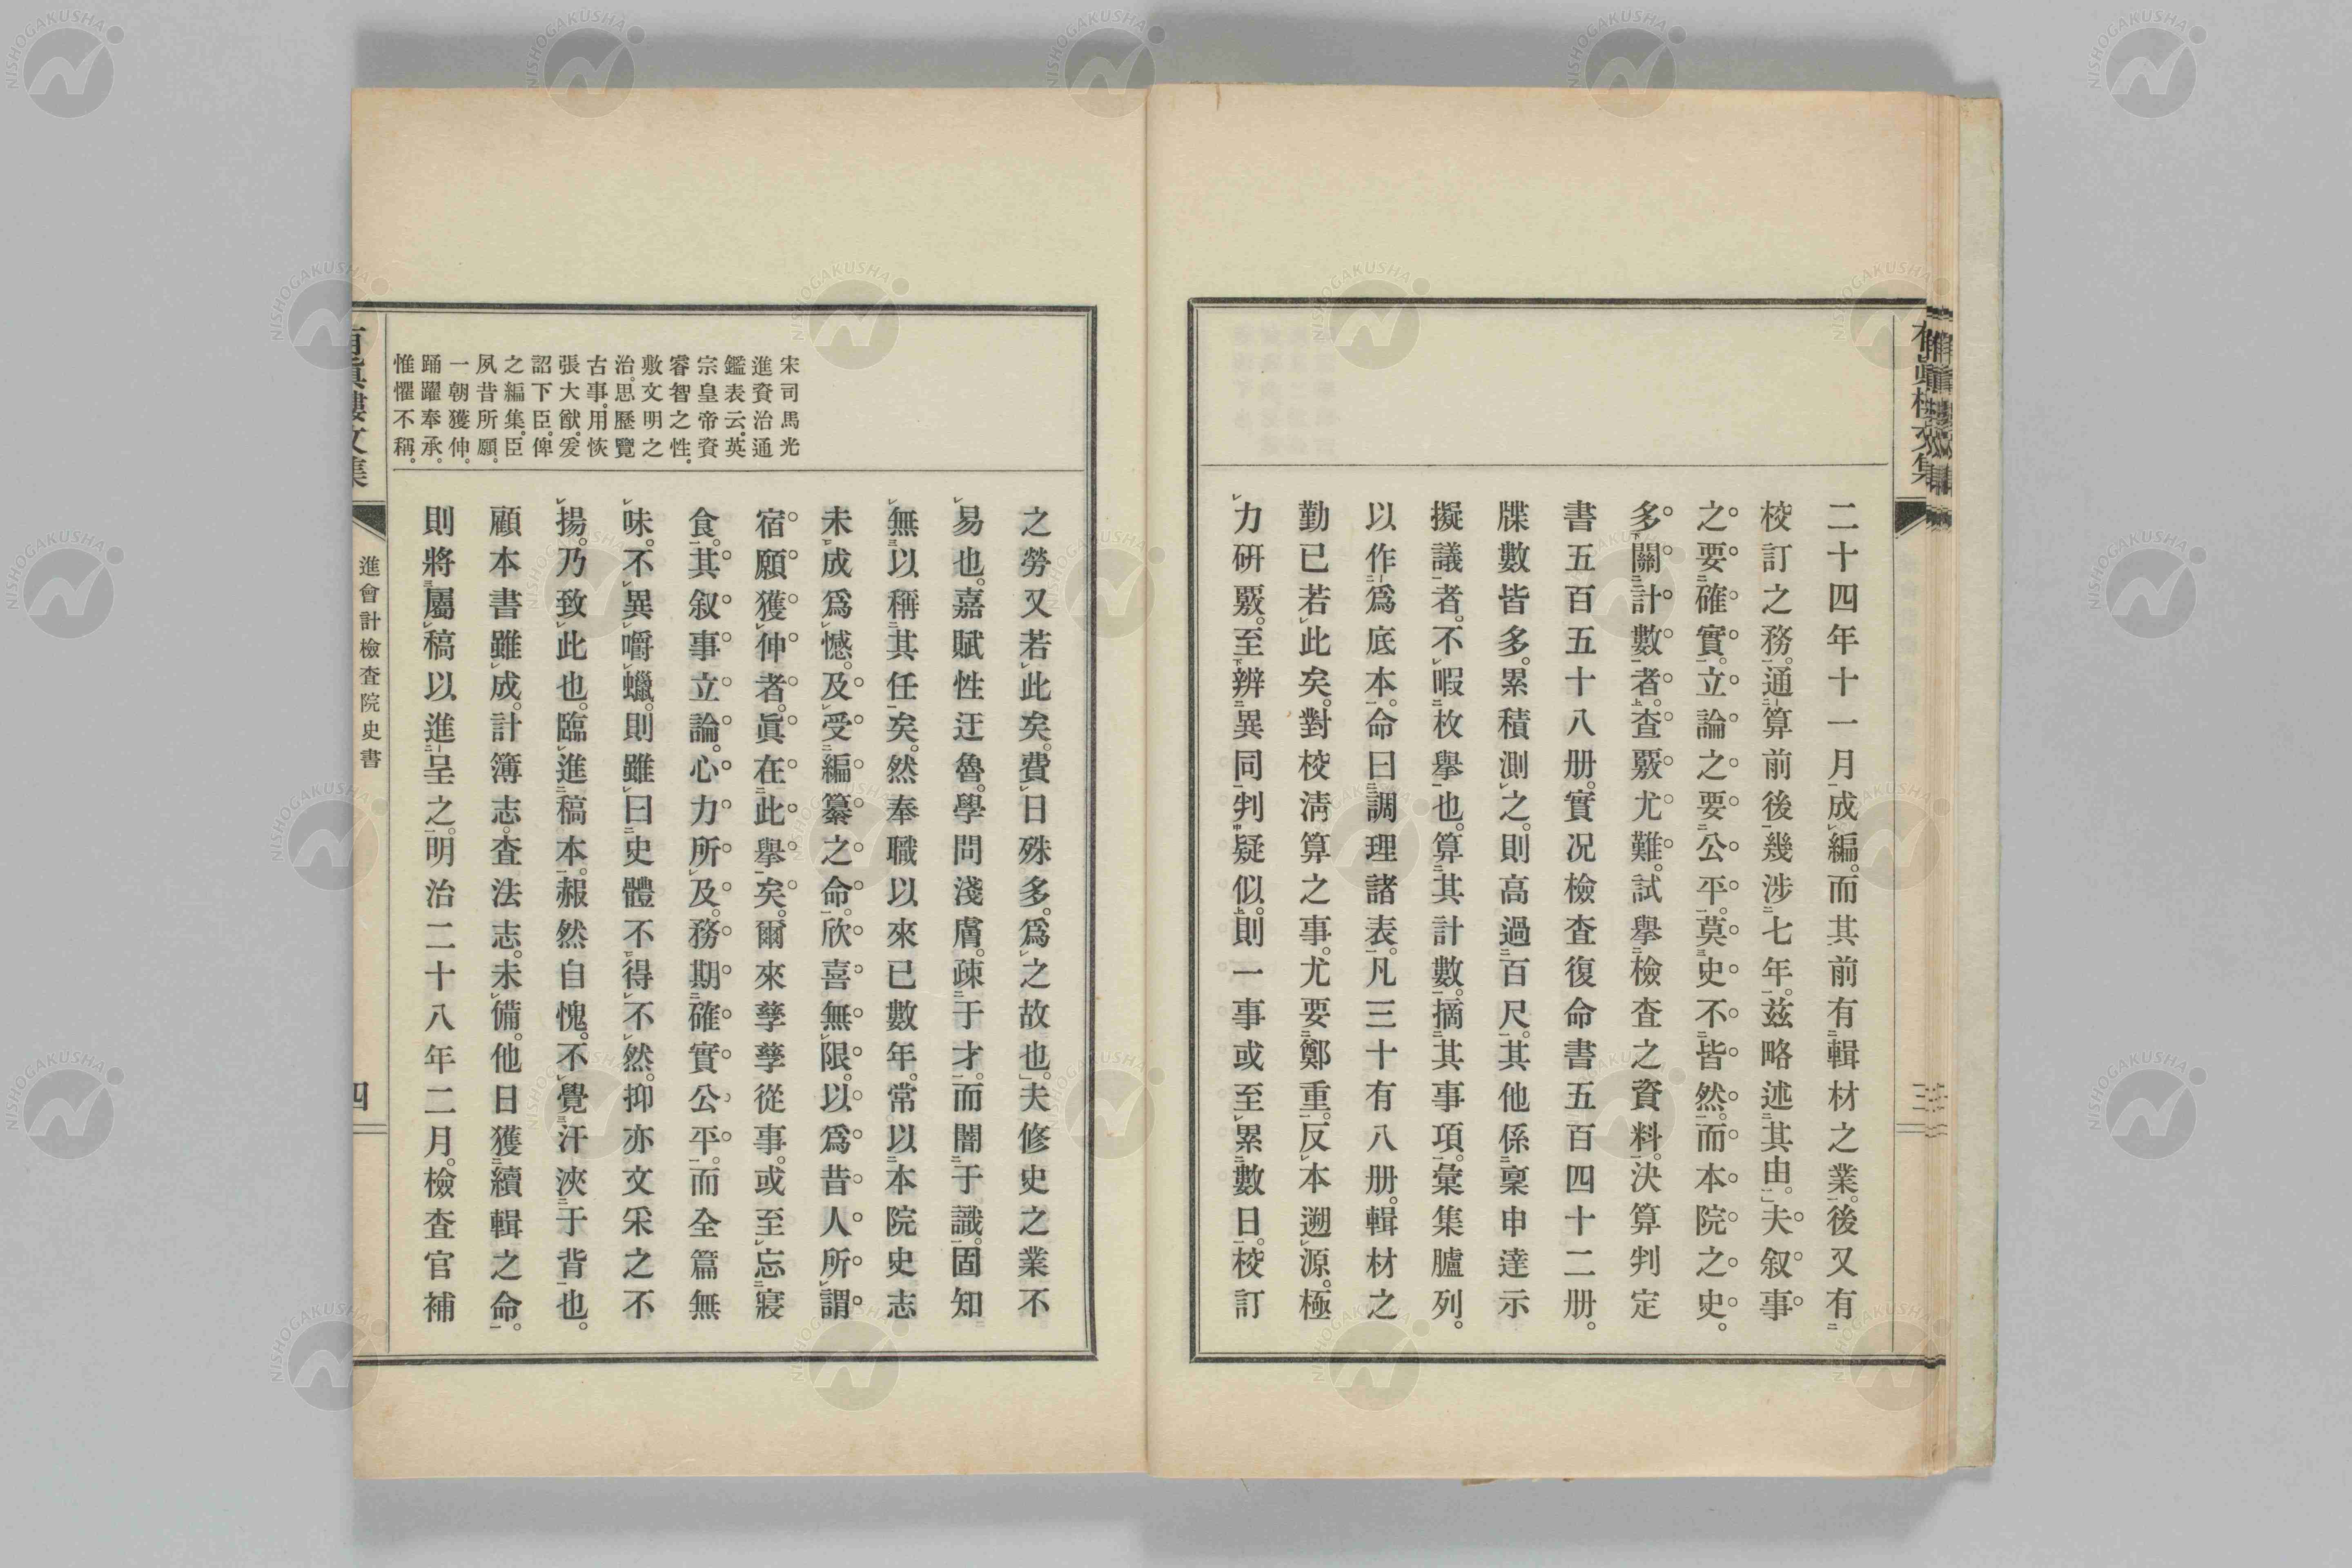 二十四年十一月成編。而其前有輯材之業。後又有
校訂之務。通算前後幾涉七年。玆略述其由。」夫叙事
之要確實。立論之要公平。莫史不皆然。而本院之史。
多關計數者。査覈尤難。試擧檢査之資料。決算判定
書五百五十八册。實況檢査復命書五百四十二册。
牒數皆多。累積測之。則高過百尺。其他係稟申達示
擬議者。不暇枚擧也。算其計數。摘其事項。彙集臚列。
以作爲底本。命曰調理諸表。凡三十有八册。輯材之
勤已若此矣。對校淸算之事。尤要鄭重。反本遡源。極
力硏覈。至辨異同判疑似。則一事或至累數日。校訂
三
之勞又若此矣。費日殊多。爲之故也。」夫修史之業不
易也。嘉賦性迂魯。學問淺膚。疎于才。而闇于識。固知
無以稱其任矣。然奉職以來已數年。常以本院史志
未成爲憾。及受編纂之命。欣喜無限。以爲昔人所謂
宿願獲伸者。眞在此擧矣。爾來孳孳從事。或至忘寢
食。其叙事立論。心力所及。務期確實公平。而全篇無
味。不異嚼蠟。則雖曰史體不得不然。抑亦文釆之不
揚。乃致此也。臨進稿本。赧然自愧。不覺汗浹于背也。
顧本書雖成。計簿志。査法志。未備。他日獲續輯之命。
則將屬稿以進呈之。明治二十八年二月。檢査官補
宋司馬光
進資治通
鑑表云。英
宗皇帝資
睿智之性。
敷文明之
治。思歷覽
古事。用恢
張大猷。爰
詔下臣。俾
之編集。臣
夙昔所願。
一朝獲伸。
踊躍奉承。
惟懼不稱。
眞樓文集
進會計檢査院史書
四